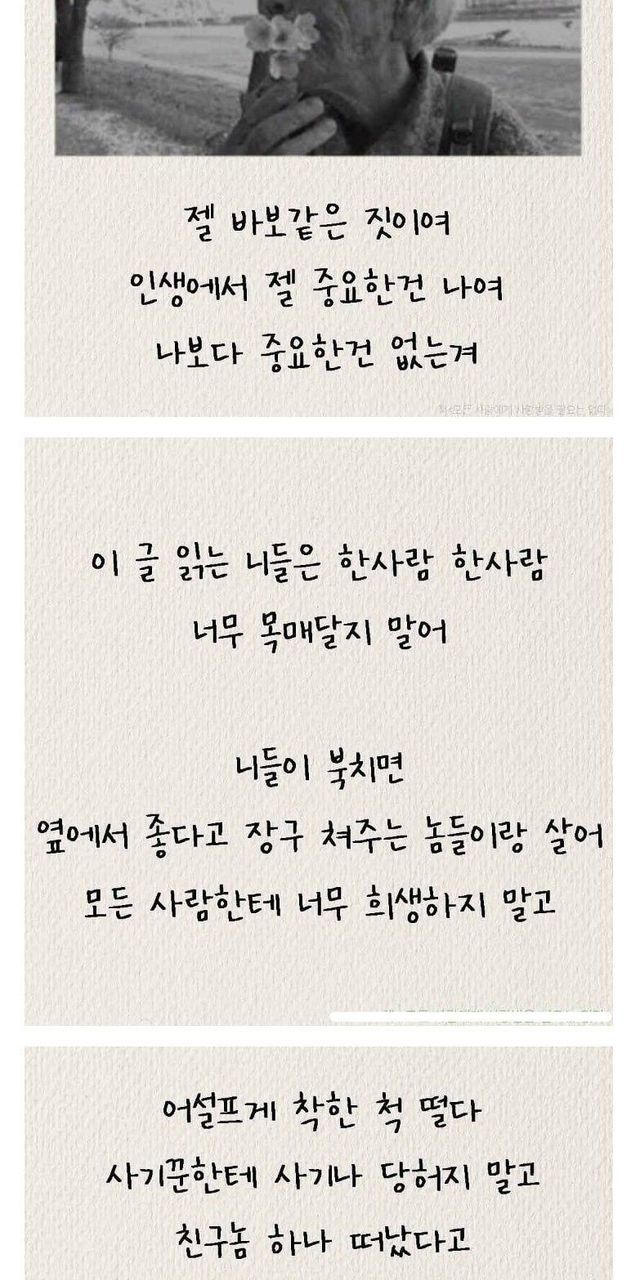 젤 바보같은 짓이여
인생에서 젤 중요한건 나여
나보다 중요한건 없는겨
이 글 읽는 니들은 한사람 한사람
너무 목매달지 말어
니들이 북치면
옆에서 좋다고 장구 쳐주는 놈들이랑 살어
모든 사람한테 너무 희생하지 말고
어설프게 착한 척 떨다
사기꾼한테 사기나 당허지 말고
친구놈 하나 떠났다고